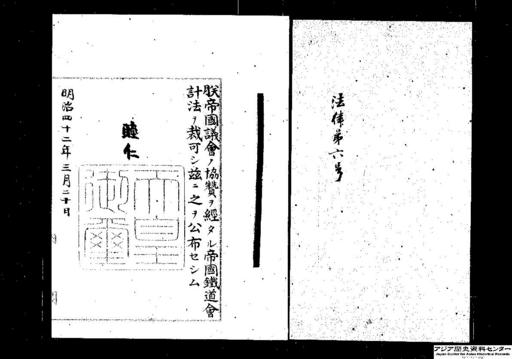 法律第六号
朕帝國議會ノ協贊ヲ經タル帝國鐵道會
計法ヲ裁可シ茲ニ之ヲ公布セシム
睦仁
天皇
御璽
明治四十二年三月二十日
アジア歴史資料センター
Japan Center for Asian Historical Records